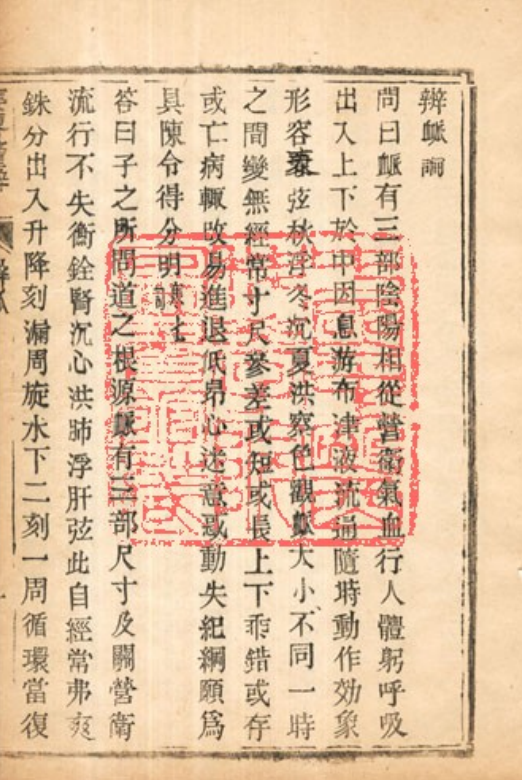 辧脈詞
問曰脈有三部陰陽相從營衛氣血行人體躬呼吸
出入上下於中因息游布津液流通隨時動作効象
形容春弦秋浮冬沉夏洪察色觀脈大小不同一時
之間變無經常寸尺參差或短或長上下乖錯或存
或亡病輙改易進退低昂心迷意或動失紀綱願爲
具陳令得分明
答曰子之所問道之根源脈有三部尺寸及關營衛
流行不失衡銓腎沉心洪肺浮肝弦此自經常弗爽
銖分出入升降刻漏周旋水下二刻一周循環當復